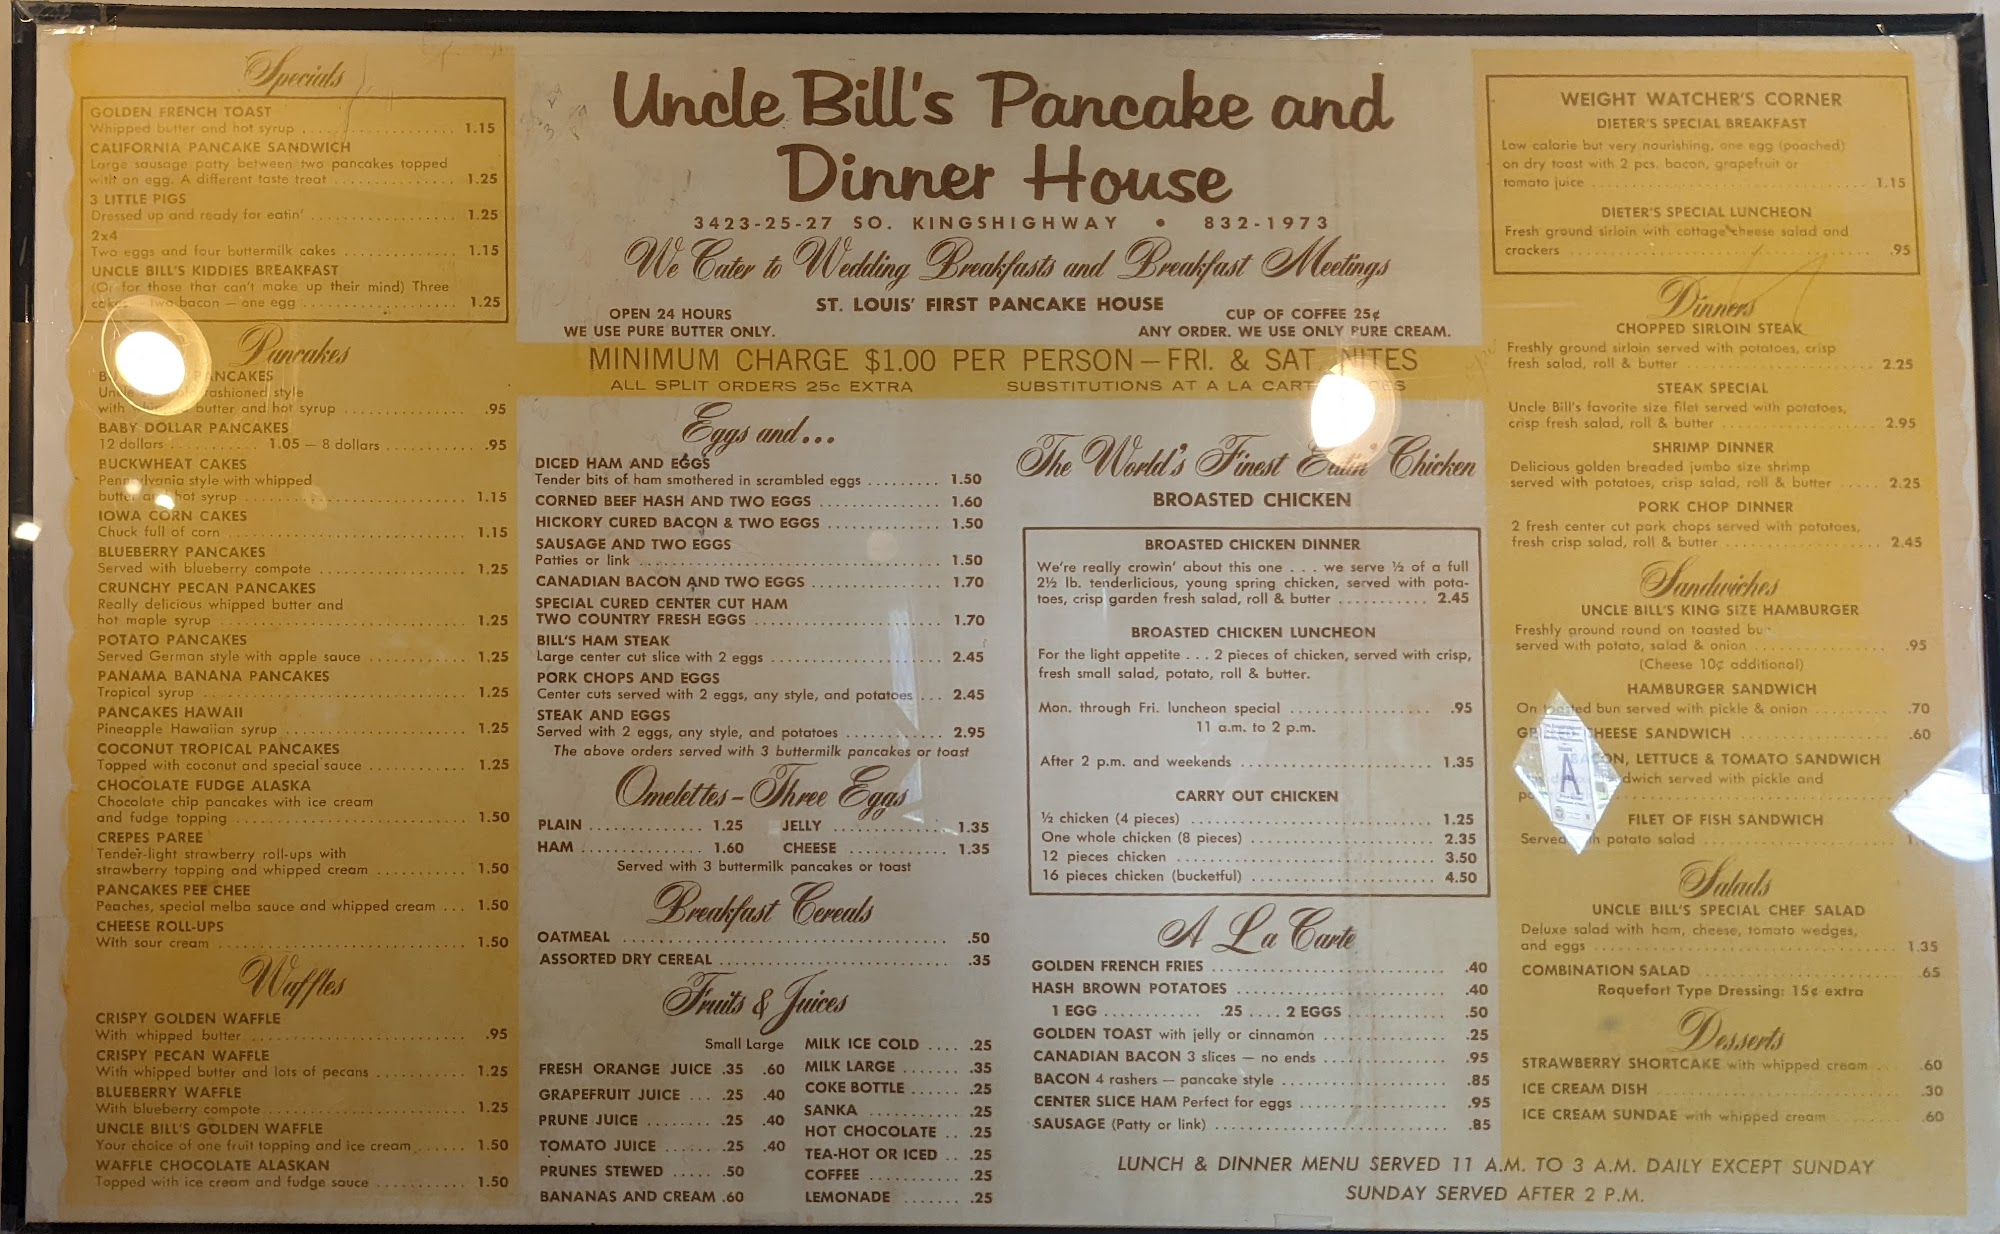 Specials
GOLDEN FRENCH TOAST
Whipped butter and hot syrup 1.15
CALIFORNIA PANCAKE SANDWICH
Large sausage patty between two pancakes topped
with an egg. A different taste treat 1.25
3 LITTLE PIGS
Dressed up and ready for eatin' 1.25
2x4
Two eggs and four buttermilk cakes 1.15
UNCLE BILL'S KIDDIES BREAKFAST
(Or for those that can't make up their mind) Three
cakes — two bacon — one egg 1.25
Pancakes
PANCAKES
fashioned style
with butter and hot syrup .95
BABY DOLLAR PANCAKES
12 dollars 1.05 — 8 dollars .95
BUCKWHEAT CAKES
Pennsylvania style with whipped
butter and hot syrup 1.15
IOWA CORN CAKES
Chuck full of corn 1.15
BLUEBERRY PANCAKES
Served with blueberry compote 1.25
CRUNCHY PECAN PANCAKES
Really delicious whipped butter and
hot maple syrup 1.25
POTATO PANCAKES
Served German style with apple sauce 1.25
PANAMA BANANA PANCAKES
Tropical syrup 1.25
PANCAKES HAWAII
Pineapple Hawaiian syrup 1.25
COCONUT TROPICAL PANCAKES
Topped with coconut and special sauce 1.25
CHOCOLATE FUDGE ALASKA
Chocolate chip pancakes with ice cream
and fudge topping 1.50
CREPES PAREE
Tender-light strawberry roll-ups with
strawberry topping and whipped cream 1.50
PANCAKES PEE CHEE
Peaches, special melba sauce and whipped cream 1.50
CHEESE ROLL-UPS
With sour cream 1.50
Waffles
CRISPY GOLDEN WAFFLE
With whipped butter .95
CRISPY PECAN WAFFLE
With whipped butter and lots of pecans 1.25
BLUEBERRY WAFFLE
With blueberry compote 1.25
UNCLE BILL'S GOLDEN WAFFLE
Your choice of one fruit topping and ice cream 1.50
WAFFLE CHOCOLATE ALASKAN
Topped with ice cream and fudge sauce 1.50
Uncle Bill's Pancake and
Dinner House
3423-25-27 SO. KINGSHIGHWAY • 832-1973
We Cater to Wedding Breakfasts and Breakfast Meetings
ST. LOUIS' FIRST PANCAKE HOUSE
OPEN 24 HOURS
WE USE PURE BUTTER ONLY.
CUP OF COFFEE 25¢
ANY ORDER. WE USE ONLY PURE CREAM.
MINIMUM CHARGE $1.00 PER PERSON — FRI. & SAT. NITES
ALL SPLIT ORDERS 25c EXTRA SUBSTITUTIONS AT A LA CARTE
Eggs and...
DICED HAM AND EGGS
Tender bits of ham smothered in scrambled eggs 1.50
CORNED BEEF HASH AND TWO EGGS 1.60
HICKORY CURED BACON & TWO EGGS 1.50
SAUSAGE AND TWO EGGS
Patties or link 1.50
CANADIAN BACON AND TWO EGGS 1.70
SPECIAL CURED CENTER CUT HAM
TWO COUNTRY FRESH EGGS 1.70
BILL'S HAM STEAK
Large center cut slice with 2 eggs 2.45
PORK CHOPS AND EGGS
Center cuts served with 2 eggs, any style, and potatoes 2.45
STEAK AND EGGS
Served with 2 eggs, any style, and potatoes 2.95
The above orders served with 3 buttermilk pancakes or toast
Omelettes – Three Eggs
PLAIN 1.25 JELLY 1.35
HAM 1.60 CHEESE 1.35
Served with 3 buttermilk pancakes or toast
Breakfast Cereals
OATMEAL .50
ASSORTED DRY CEREAL .35
Fruits & Juices
Small Large
FRESH ORANGE JUICE .35 .60
GRAPEFRUIT JUICE .25 .40
PRUNE JUICE .25 .40
TOMATO JUICE .25 .40
PRUNES STEWED .50
BANANAS AND CREAM .60
MILK ICE COLD .25
MILK LARGE .35
COKE BOTTLE .25
SANKA .25
HOT CHOCOLATE .25
TEA-HOT OR ICED .25
COFFEE .25
LEMONADE .25
The World's Finest Eatin' Chicken
BROASTED CHICKEN
BROASTED CHICKEN DINNER
We're really crowin' about this one . . . we serve ½ of a full
2½ lb. tenderlicious, young spring chicken, served with pota-
toes, crisp garden fresh salad, roll & butter 2.45
BROASTED CHICKEN LUNCHEON
For the light appetite . . . 2 pieces of chicken, served with crisp,
fresh small salad, potato, roll & butter.
Mon. through Fri. luncheon special .95
11 a.m. to 2 p.m.
After 2 p.m. and weekends 1.35
CARRY OUT CHICKEN
½ chicken (4 pieces) 1.25
One whole chicken (8 pieces) 2.35
12 pieces chicken 3.50
16 pieces chicken (bucketful) 4.50
A La Carte
GOLDEN FRENCH FRIES .40
HASH BROWN POTATOES .40
1 EGG .25 2 EGGS .50
GOLDEN TOAST with jelly or cinnamon .25
CANADIAN BACON 3 slices — no ends .95
BACON 4 rashers — pancake style .85
CENTER SLICE HAM Perfect for eggs .95
SAUSAGE (Patty or link) .85
WEIGHT WATCHER'S CORNER
DIETER'S SPECIAL BREAKFAST
Low calorie but very nourishing, one egg (poached)
on dry toast with 2 pcs. bacon, grapefruit or
tomato juice 1.15
DIETER'S SPECIAL LUNCHEON
Fresh ground sirloin with cottage cheese salad and
crackers .95
Dinners
CHOPPED SIRLOIN STEAK
Freshly ground sirloin served with potatoes, crisp
fresh salad, roll & butter 2.25
STEAK SPECIAL
Uncle Bill's favorite size filet served with potatoes,
crisp fresh salad, roll & butter 2.95
SHRIMP DINNER
Delicious golden breaded jumbo size shrimp
served with potatoes, crisp salad, roll & butter 2.25
PORK CHOP DINNER
2 fresh center cut pork chops served with potatoes,
fresh crisp salad, roll & butter 2.45
Sandwiches
UNCLE BILL'S KING SIZE HAMBURGER
Freshly ground round on toasted bun
served with potato, salad & onion .95
(Cheese 10¢ additional)
HAMBURGER SANDWICH
On toasted bun served with pickle & onion .70
CHEESE SANDWICH .60
BACON, LETTUCE & TOMATO SANDWICH
sandwich served with pickle and
FILET OF FISH SANDWICH
Served with potato salad
A
Salads
UNCLE BILL'S SPECIAL CHEF SALAD
Deluxe salad with ham, cheese, tomato wedges,
and eggs 1.35
COMBINATION SALAD .65
Roquefort Type Dressing: 15¢ extra
Desserts
STRAWBERRY SHORTCAKE with whipped cream .60
ICE CREAM DISH .30
ICE CREAM SUNDAE with whipped cream .60
LUNCH & DINNER MENU SERVED 11 A.M. TO 3 A.M. DAILY EXCEPT SUNDAY
SUNDAY SERVED AFTER 2 P.M.